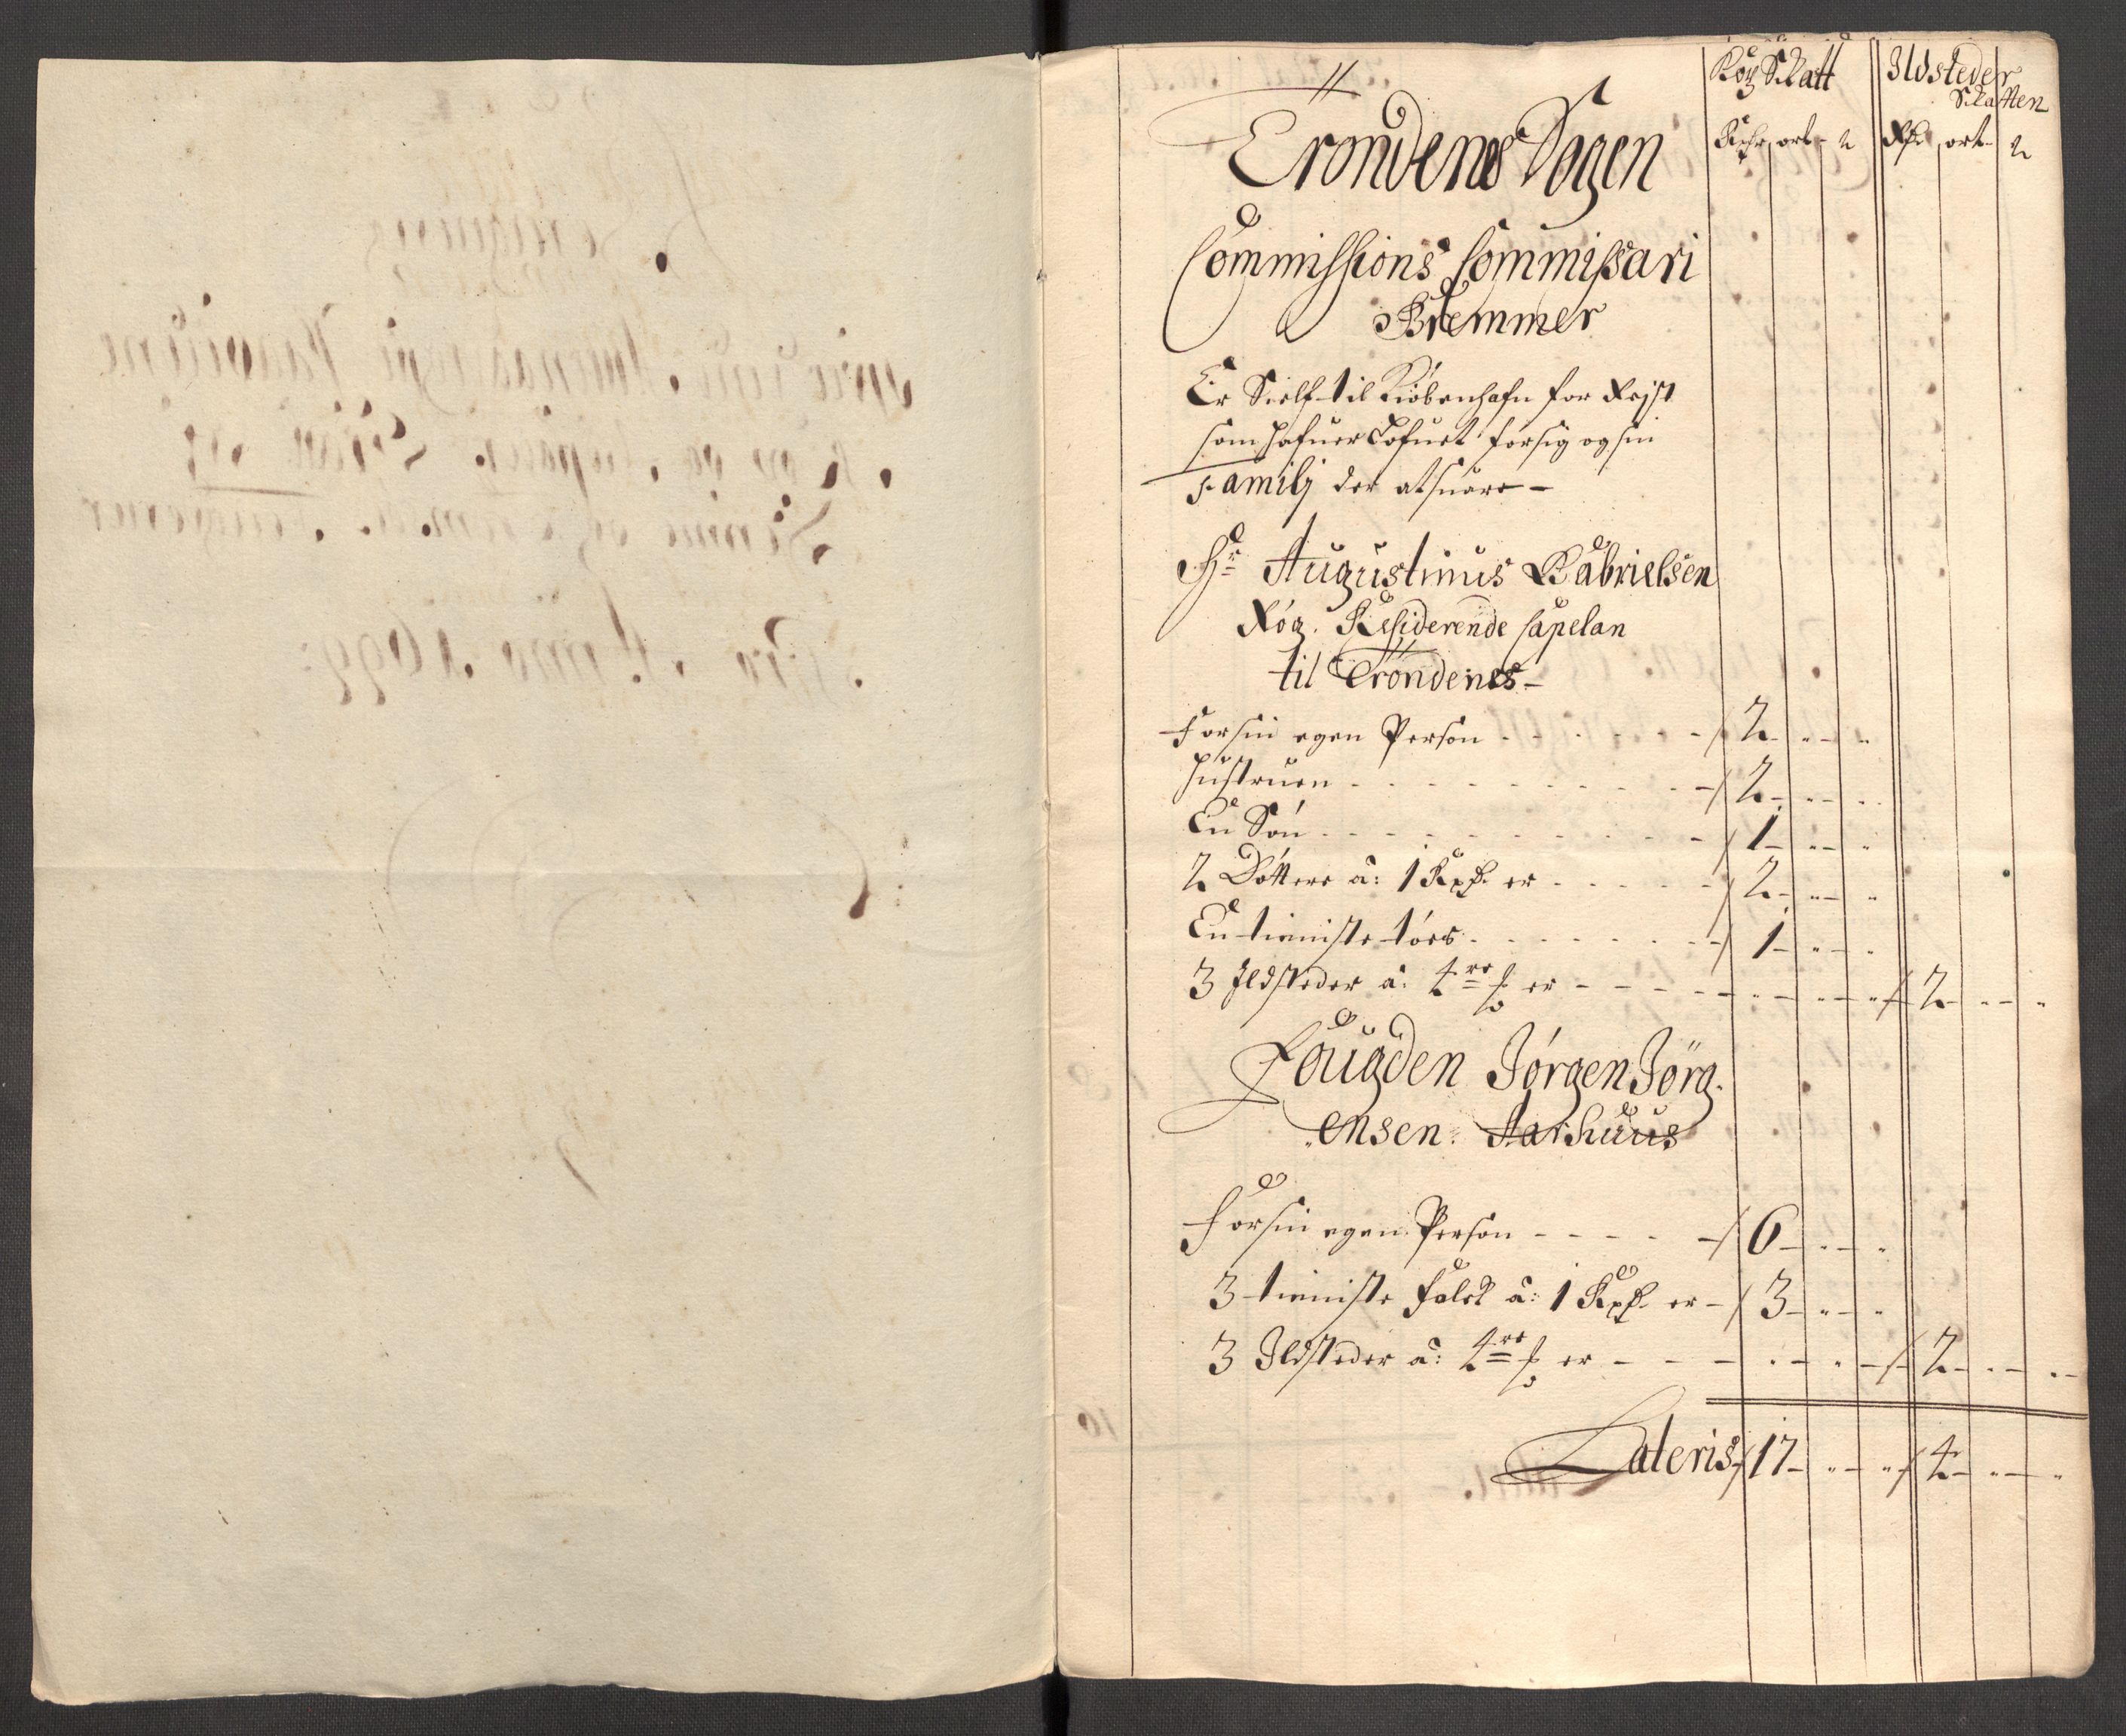 Kop Skatt
Ildsteder
Skatten
Rdr ort
Rdr ort
Trondenes Sogen
Commissions Commissari
Bremmer
Er Sielf til Kiöbenhafn for Rejst
som hafuer Lofuet for sig og sin
Familj der at suare -
Hr Augustinus Gabrielsen
Rög. Residerende Capelan
til Trondenes -
For sin egen Person - 2
Hustruen - 2
En Sön - 1
2 Döttere a: 1 Rdr er - 2
En tieniste töes - 1
3 Ildsteder a: 4 er - 2
Fougden Jörgen Jörg-
ensen Aarhuus
For sin egen Person - 6
3 tieniste folck a: 1 Rdr er - 3
3 Ildsteder a: 4 er - 2
Lateris 17 4